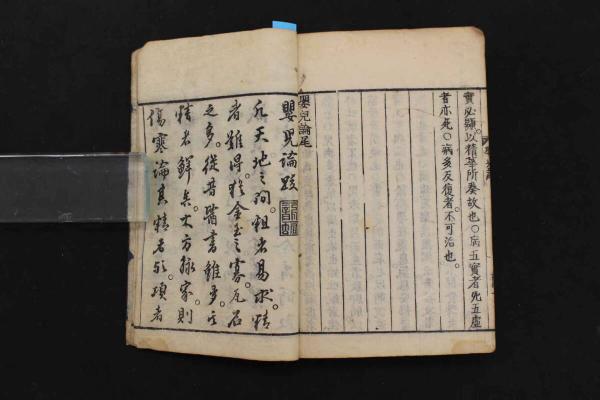 實必顯。以精華所奏故也〇病五實者死五虛
者亦死〇病多反復者不可治也。
嬰兒論尾
嬰兒論跋
凡天地之間。粗者易求。精
者難得。猶金玉之寡。瓦石
之多。從昔醫書雖多。其
精者鮮矣。大方脉家。則
傷寒論其精者歟。頃者